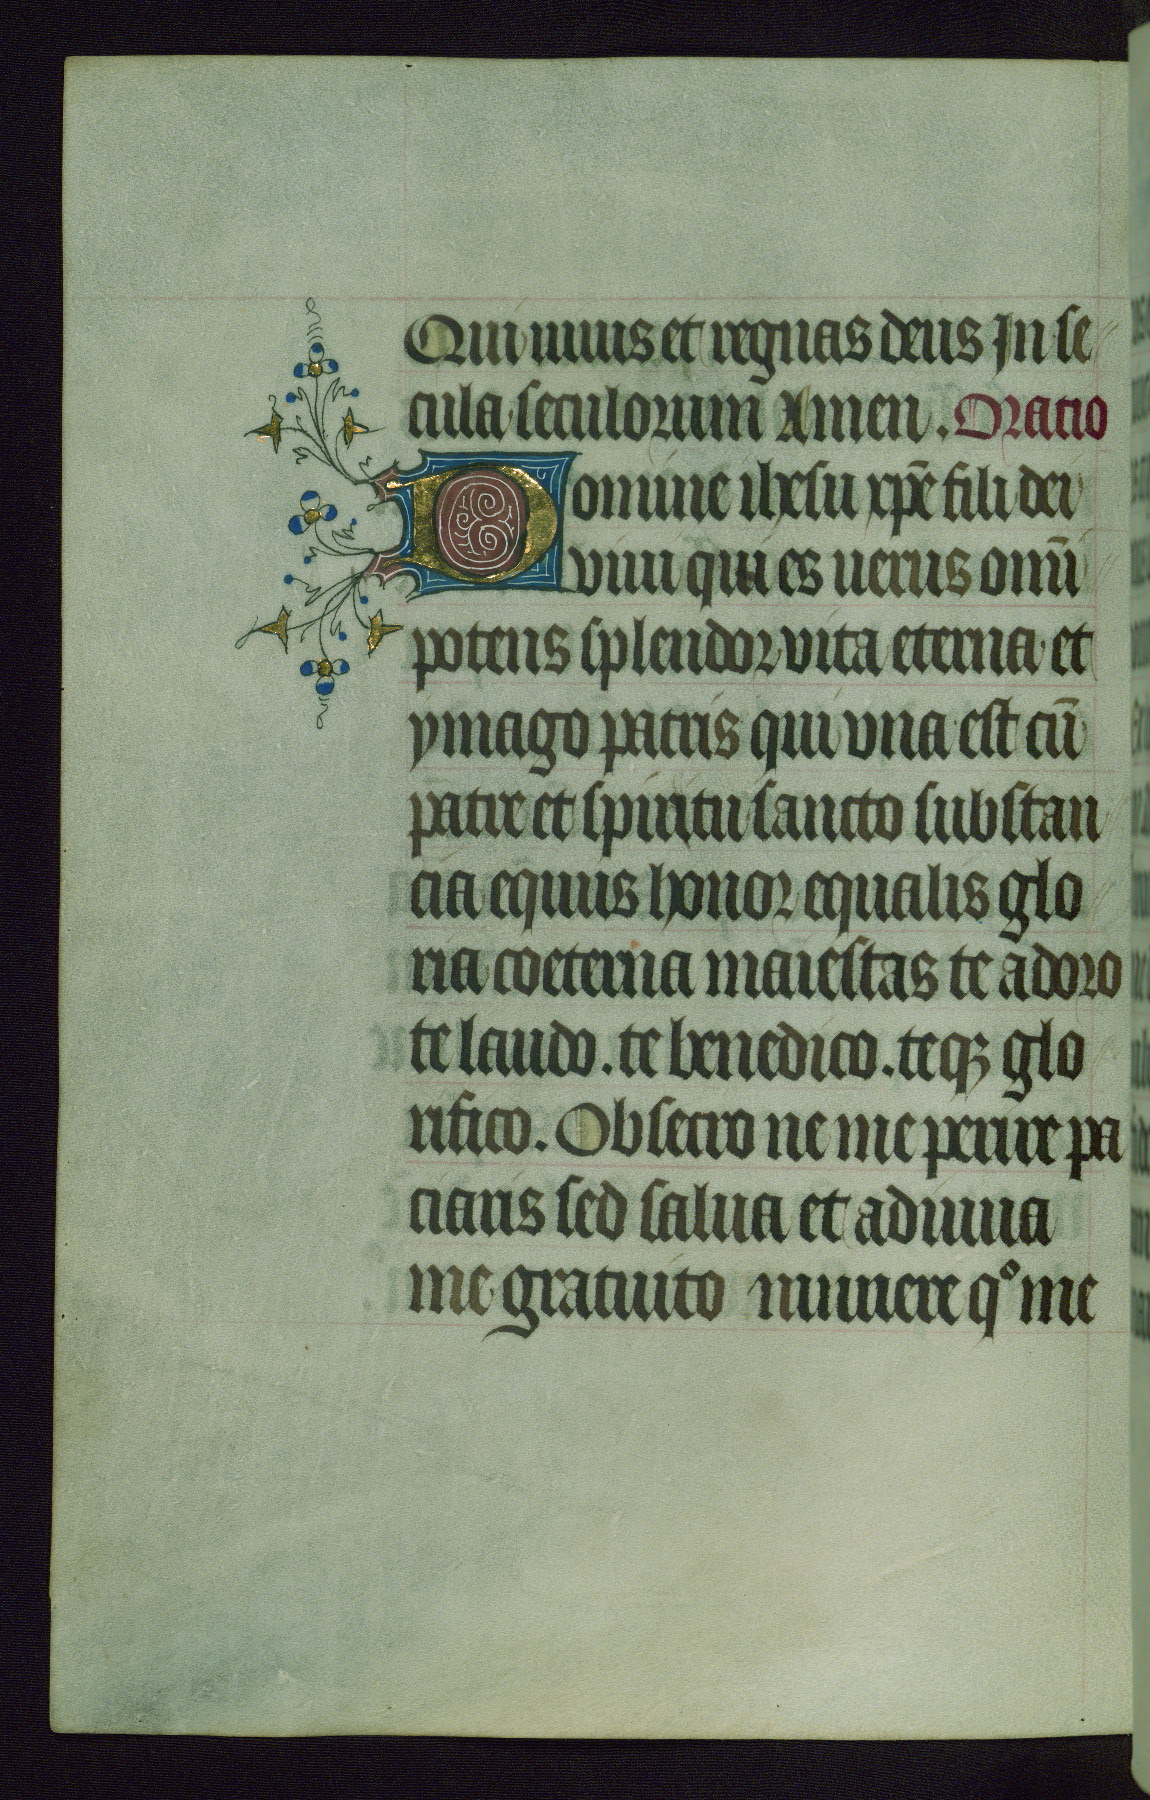 Qui uiuis et regnas deus In se
cula seculorum Amen. Oratio
Domine ihesu xp̄e fili dei
viui qui es uerus omī
potens splendor vita eterna et
ymago patris qui vna est cū
patre et spiritu sancto substan
cia equus honor equalis glo
ria coeterna maiestas te adoro
te laudo. te benedico. teqꝫ glo
rifico. Obsecro ne me perire pa
ciaris sed salua et adiuua
me gratuito munere qº me